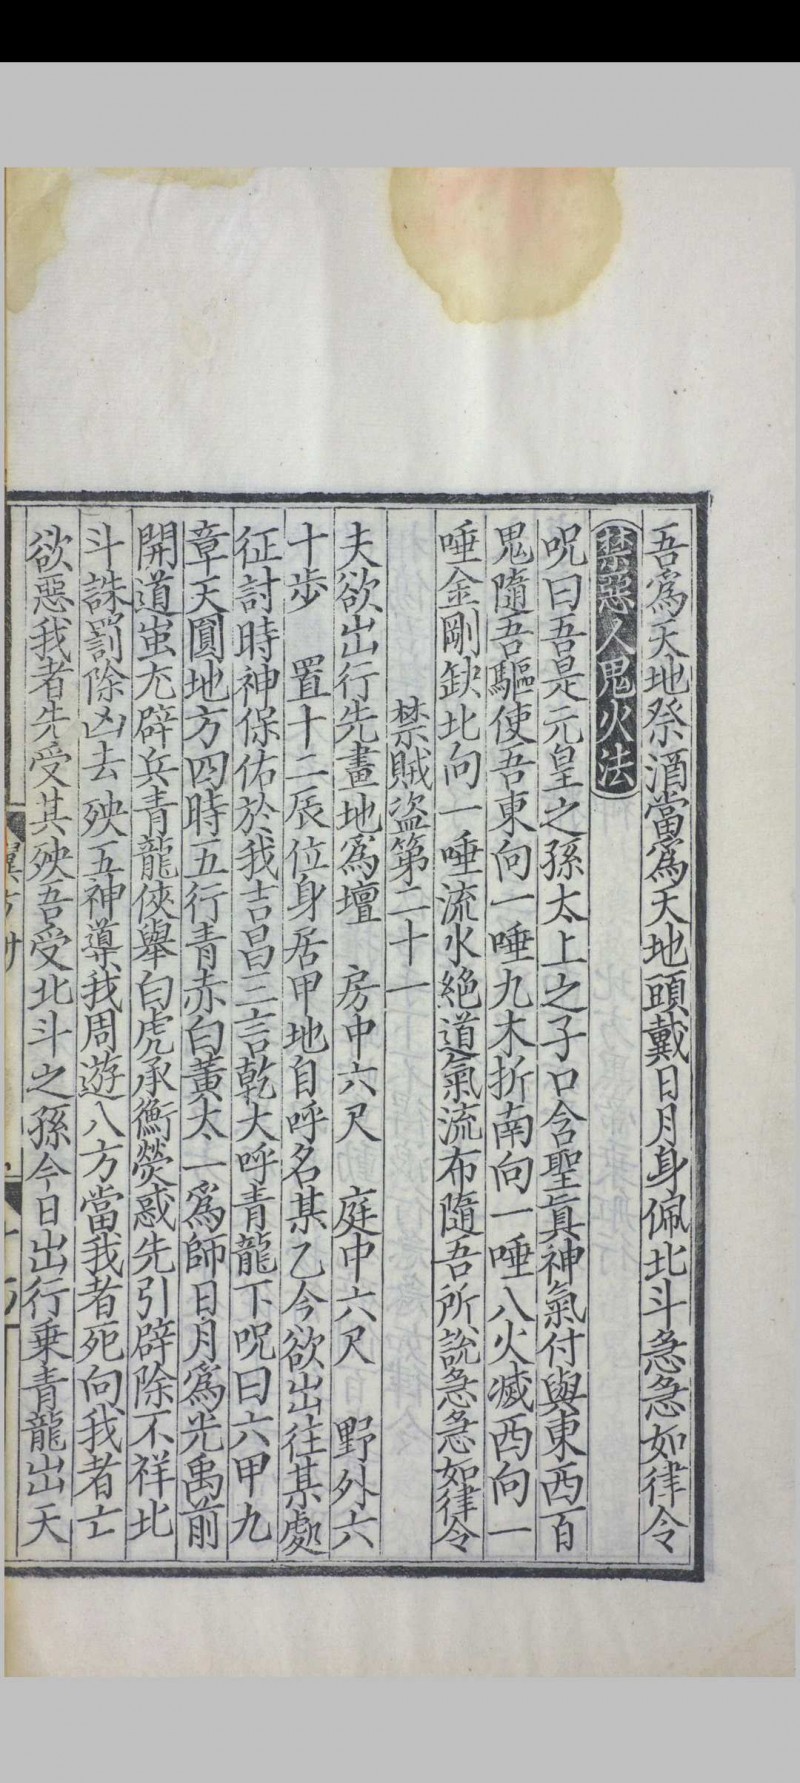 吾爲天地祭酒當爲天地頭戴日月身佩北斗急急如律令
禁惡人鬼火法
呪曰吾是元皇之孫太上之子口含聖眞神氣付與東西百
鬼隨吾驅使吾東向一唾九木折南向一唾八火滅西向一
唾金剛缺北向一唾流水絕道氣流布隨吾所說急急如律令
禁賊盜第二十一
夫欲出行先畫地爲壇 房中六尺 庭中六尺 野外六
十步 置十二辰位身居甲地自呼名某乙今欲出往某處
征討時神保佑於我吉昌三言乾大呼青龍下呪曰六甲九
章天圓地方四時五行青赤白黃太一爲師日月爲光禹前
開道蚩尤辟兵青龍俠轝白虎承衡熒惑先引辟除不祥北
斗誅罰除凶去殃五神導我周遊八方當我者死向我者亡
欲惡我者先受其殃吾受北斗之孫今日出行乗青龍出天